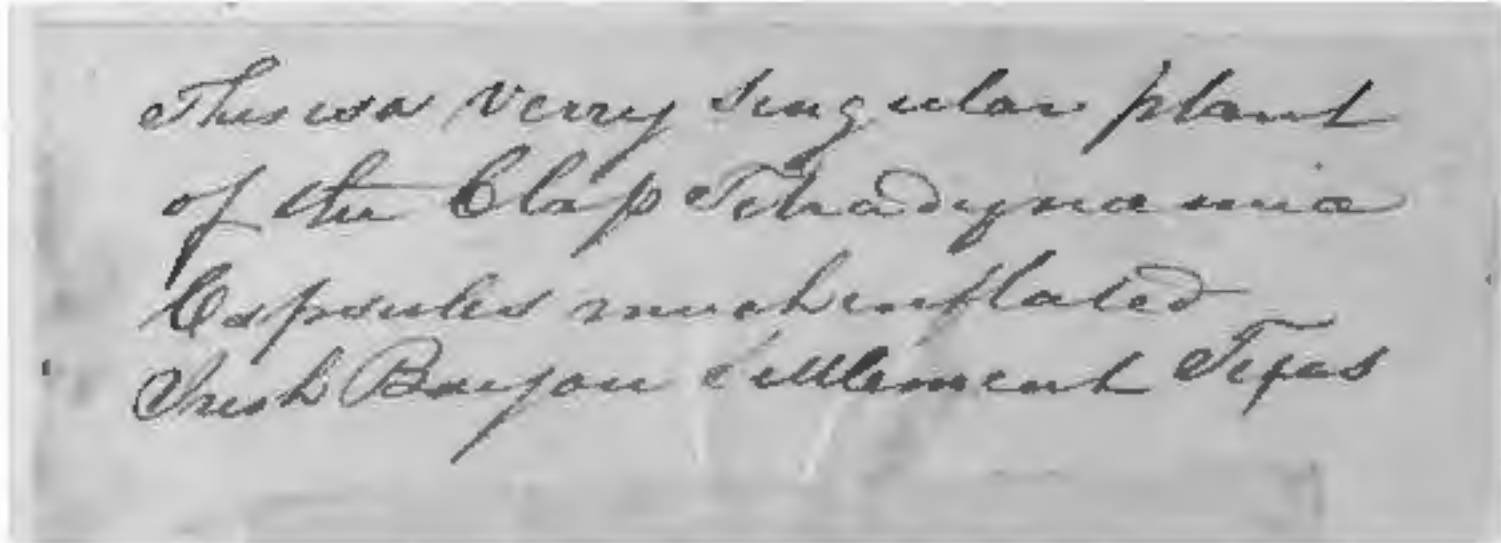 This is a verry singular plant
of the Class Tetradynamia
Capsules much inflated
Irish Bayou settlement Texas